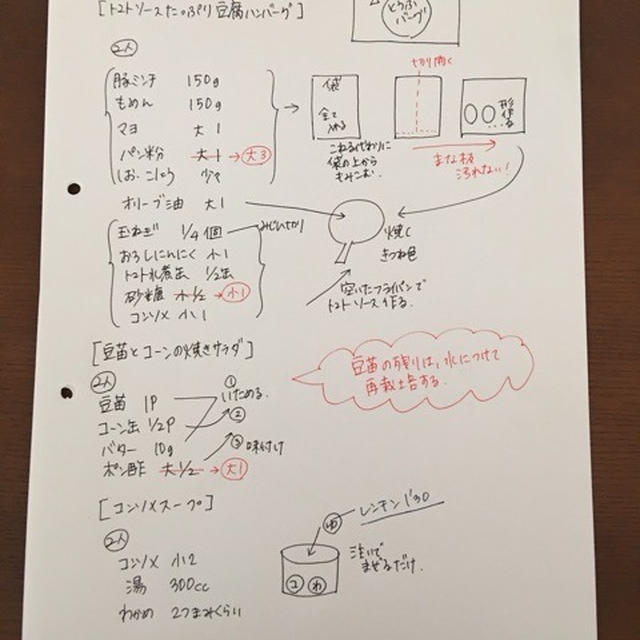 [トマトソースたっぷり豆腐ハンバーグ]
とうふ
バーグ
2人
豚ミンチ 150g
もめん 150g
マヨ 大1
パン粉 大1→大3
しお・こしょう 少々
袋
全て
入れる
こねる代わりに
袋の上から
もみこむ.
切り開く
形作る
まな板
汚れない!
オリーブ油 大1
焼く
きつね色
玉ねぎ 1/4個 みじん切り
おろしにんにく 小1
トマト水煮缶 1/2缶
砂糖 小1/2→小1
コンソメ 小1
空いたフライパンで
トマトソース作る.
[豆苗とコーンの焼きサラダ]
2人
豆苗 1P
コーン缶 1/2P
バター 10g
ポン酢 大1/2→大1
①
いためる.
②
③味付け
豆苗の残りは、水につけて
再栽培する.
[コンソメスープ]
2人
コンソメ 小2
湯 300cc
わかめ 2つまみくらい
ゆ
レンチン1'30
コ わ
注いで
まぜるだけ.